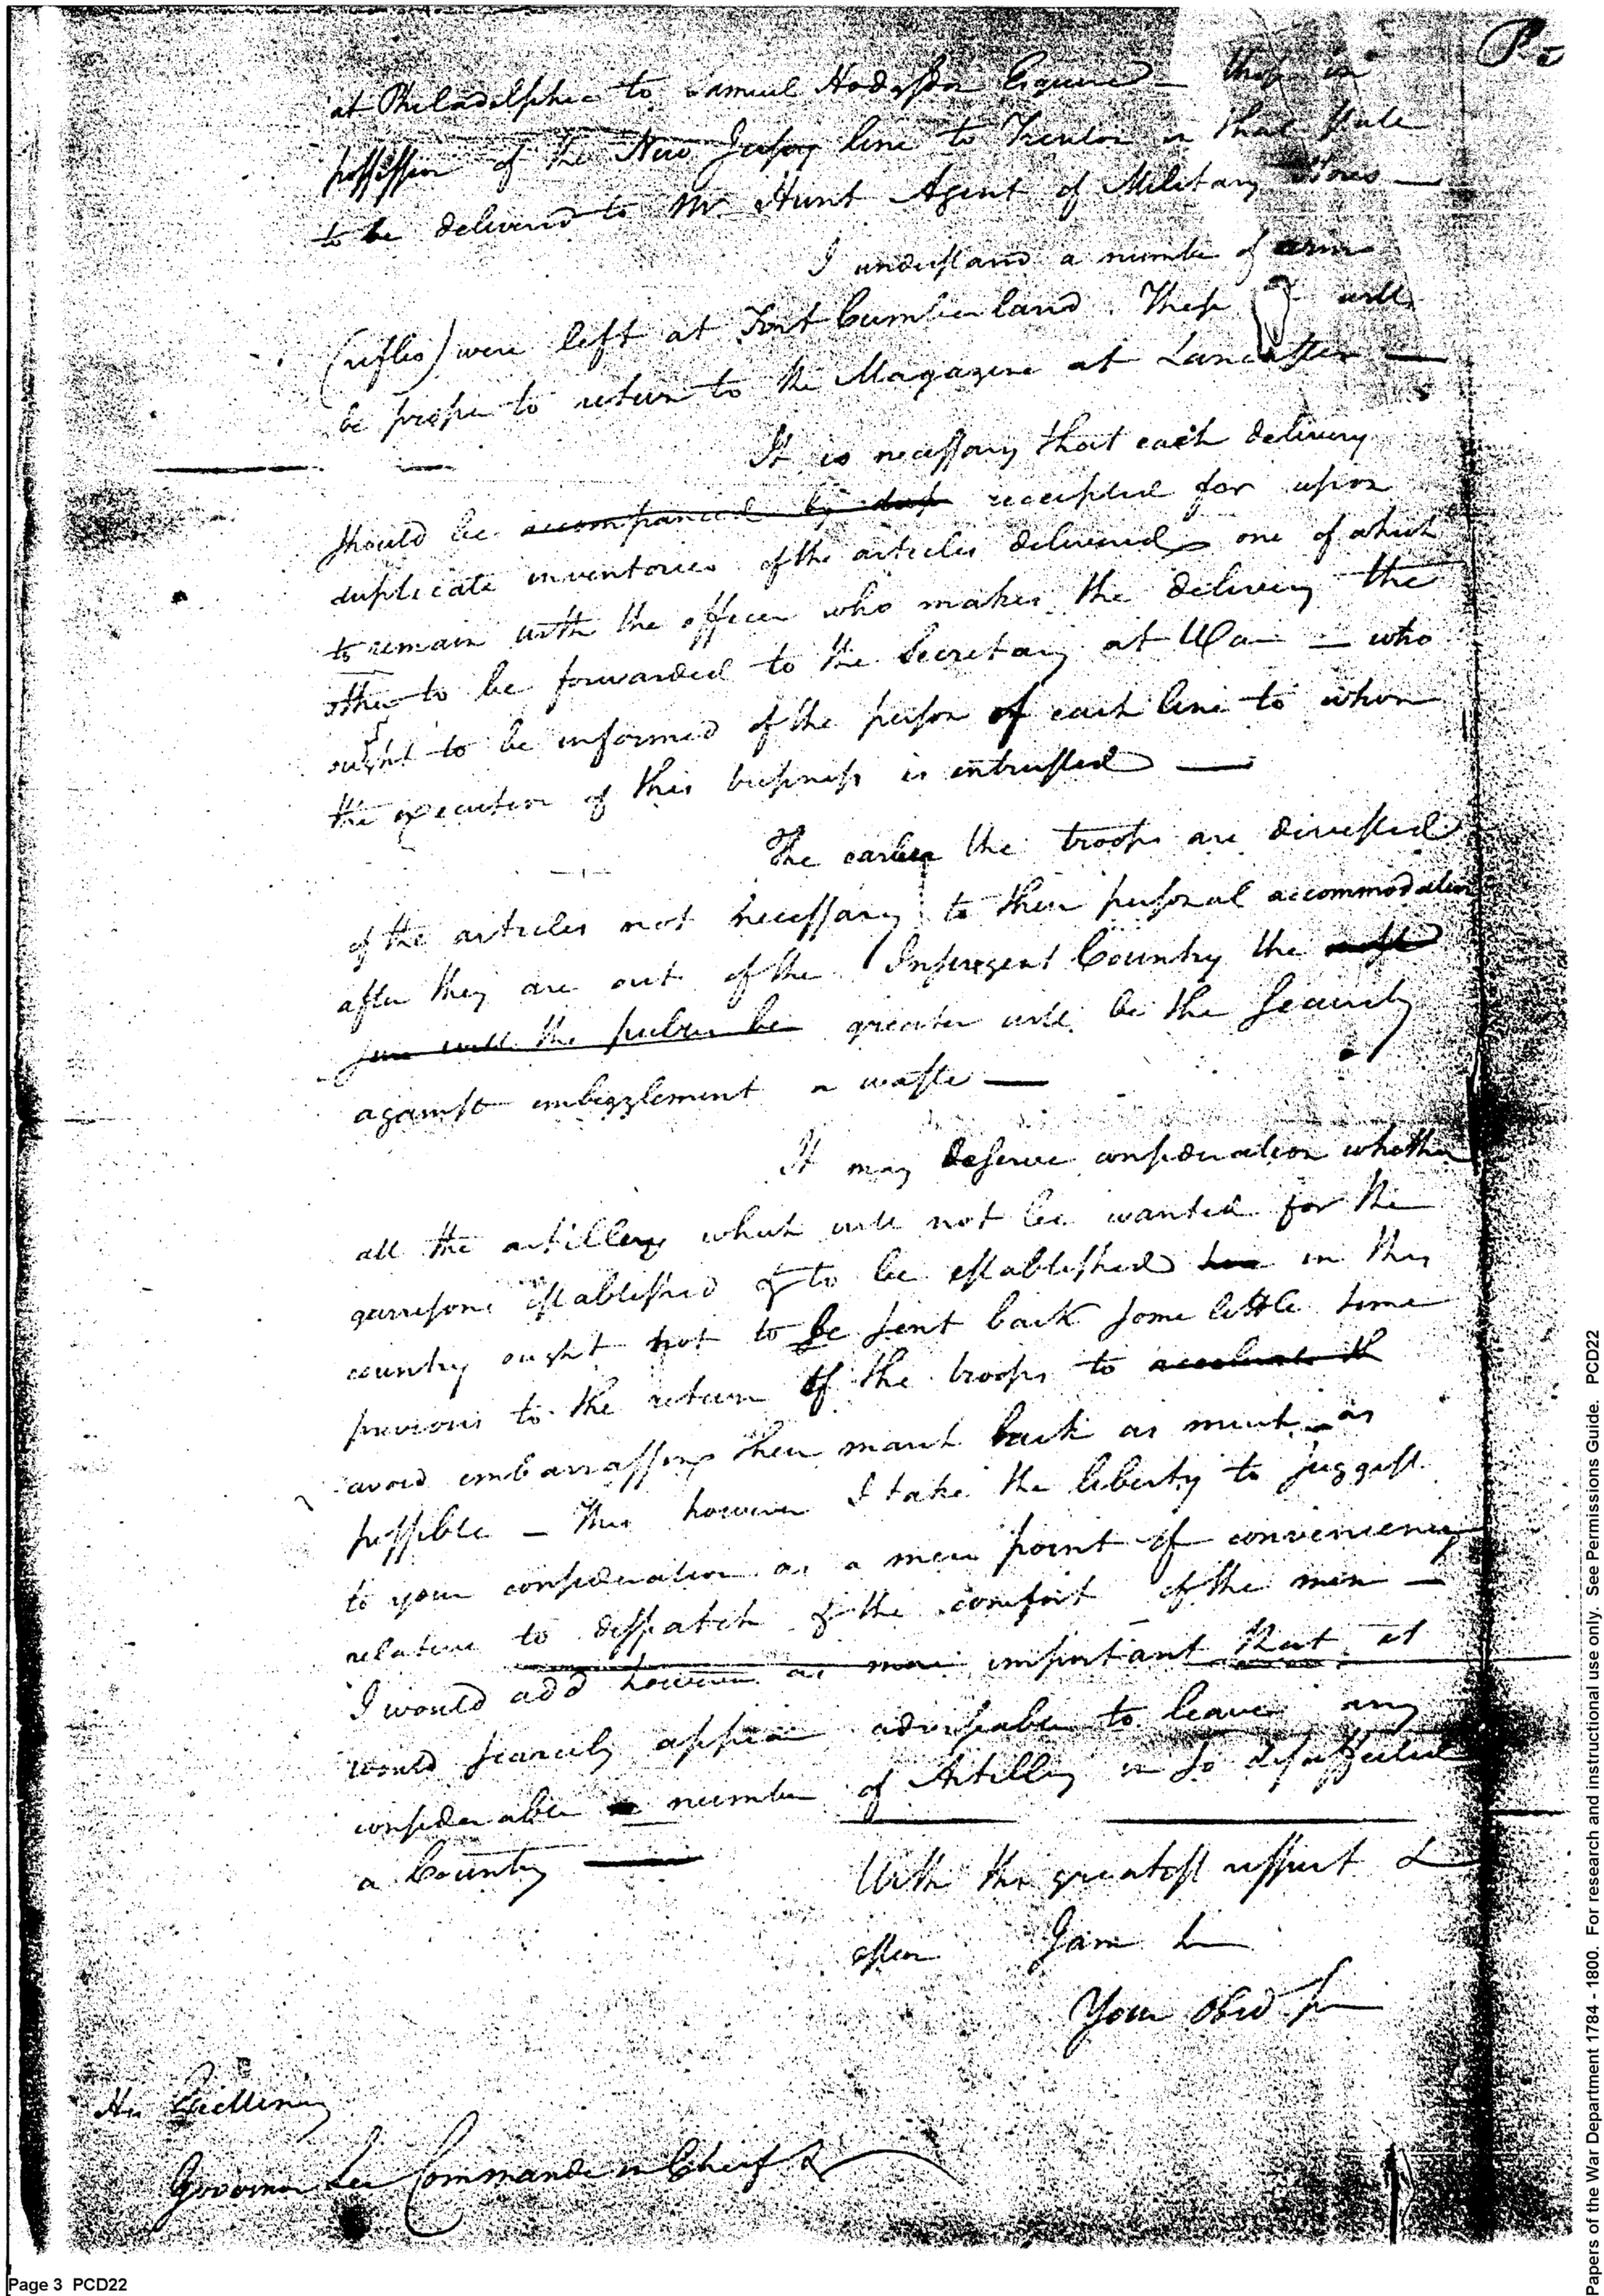 at Philadelphia to Samuel Hodgsdon Esquire — those in
possession of the New Jersey line to Trenton in that State
to be delivered to Mr Hunt Agent of Military Stores —
I understand a number of arms
(rifles) were left at Fort Cumberland. These will
be proper to return to the Magazine at Lancaster —
It is necessary that each delivery
should be accompanied by dup receipted for upon
duplicate inventories of the articles delivered one of which
to remain with the officer who makes the delivery the
other to be forwarded to the Secretary at War — who
ought to be informed of the person of each line to whom
the execution of this business is intrusted —
The earlier the troops are divested
of the articles not necessary to their personal accommodation
after they are out of the Insurgent Country the more
sure will the public be greater will be the security
against embezzlement or waste —
It may deserve consideration whether
all the artillery which will not be wanted for the
garrisons established & to be established here in this
country ought not to be sent back some little time
previous to the return of the troops to accelerate th
avoid embarrassing their march back as much as
possible — This however I take the liberty to suggest
to your consideration as a mere point of conveniency
relative to dispatch & the comfort of the men —
I would add however as more important that it
would scarcely appear adviseable to leave any
considerable number of Artillery in so disaffected
a Country —
With the greatest respect &
esteem I am Sir
Your Obed Ser
His Excellency
Governor Lee Commander in Chief &
Page 3 PCD22
Papers of the War Department 1784 - 1800. For research and instructional use only. See Permissions Guide. PCD22